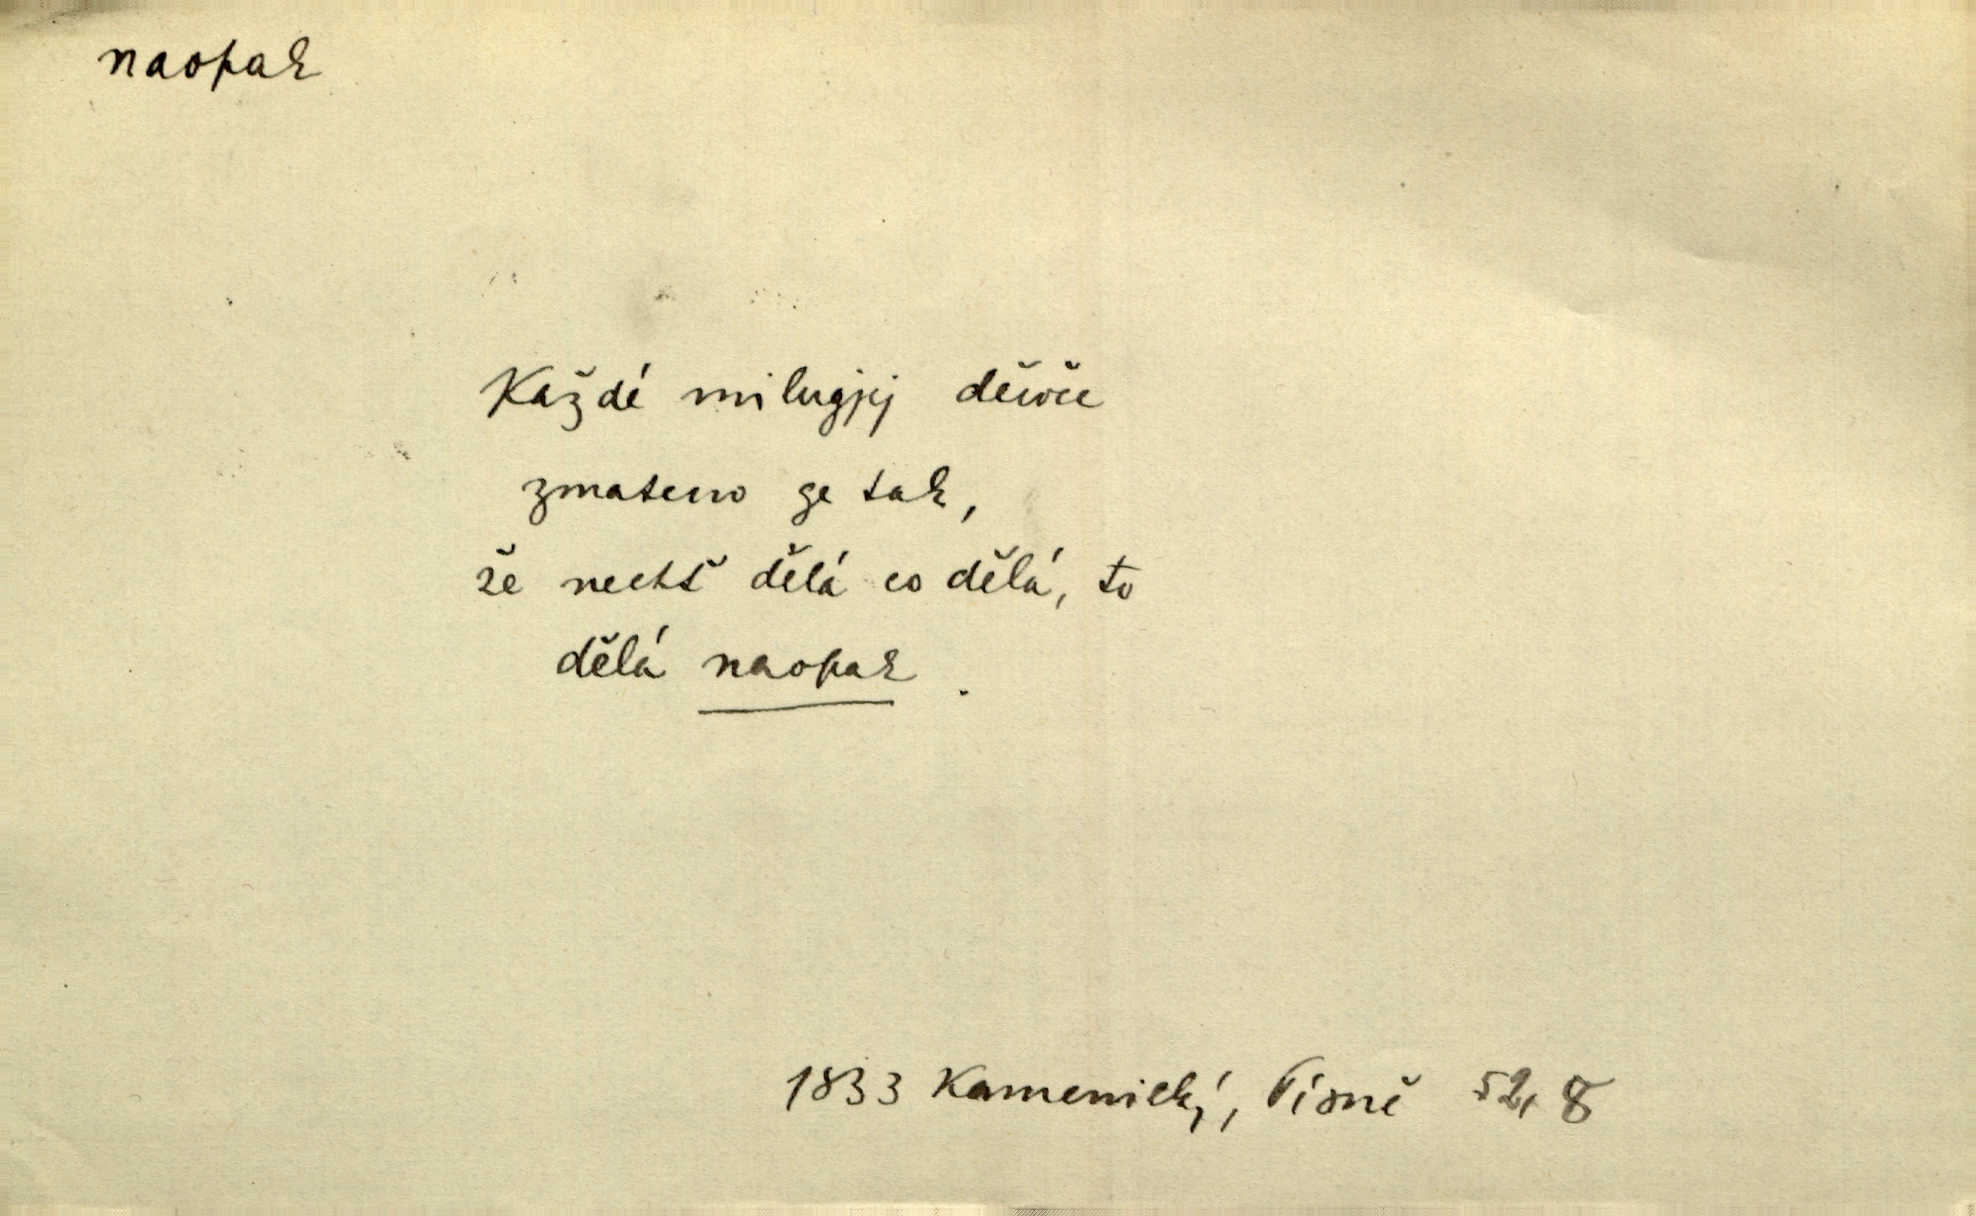 naopak
Každé milugjcj děwče
zmateno ge tak,
že nechť dělá co dělá, to
dělá naopak.
1833 Kamenický, Písně 52, 8